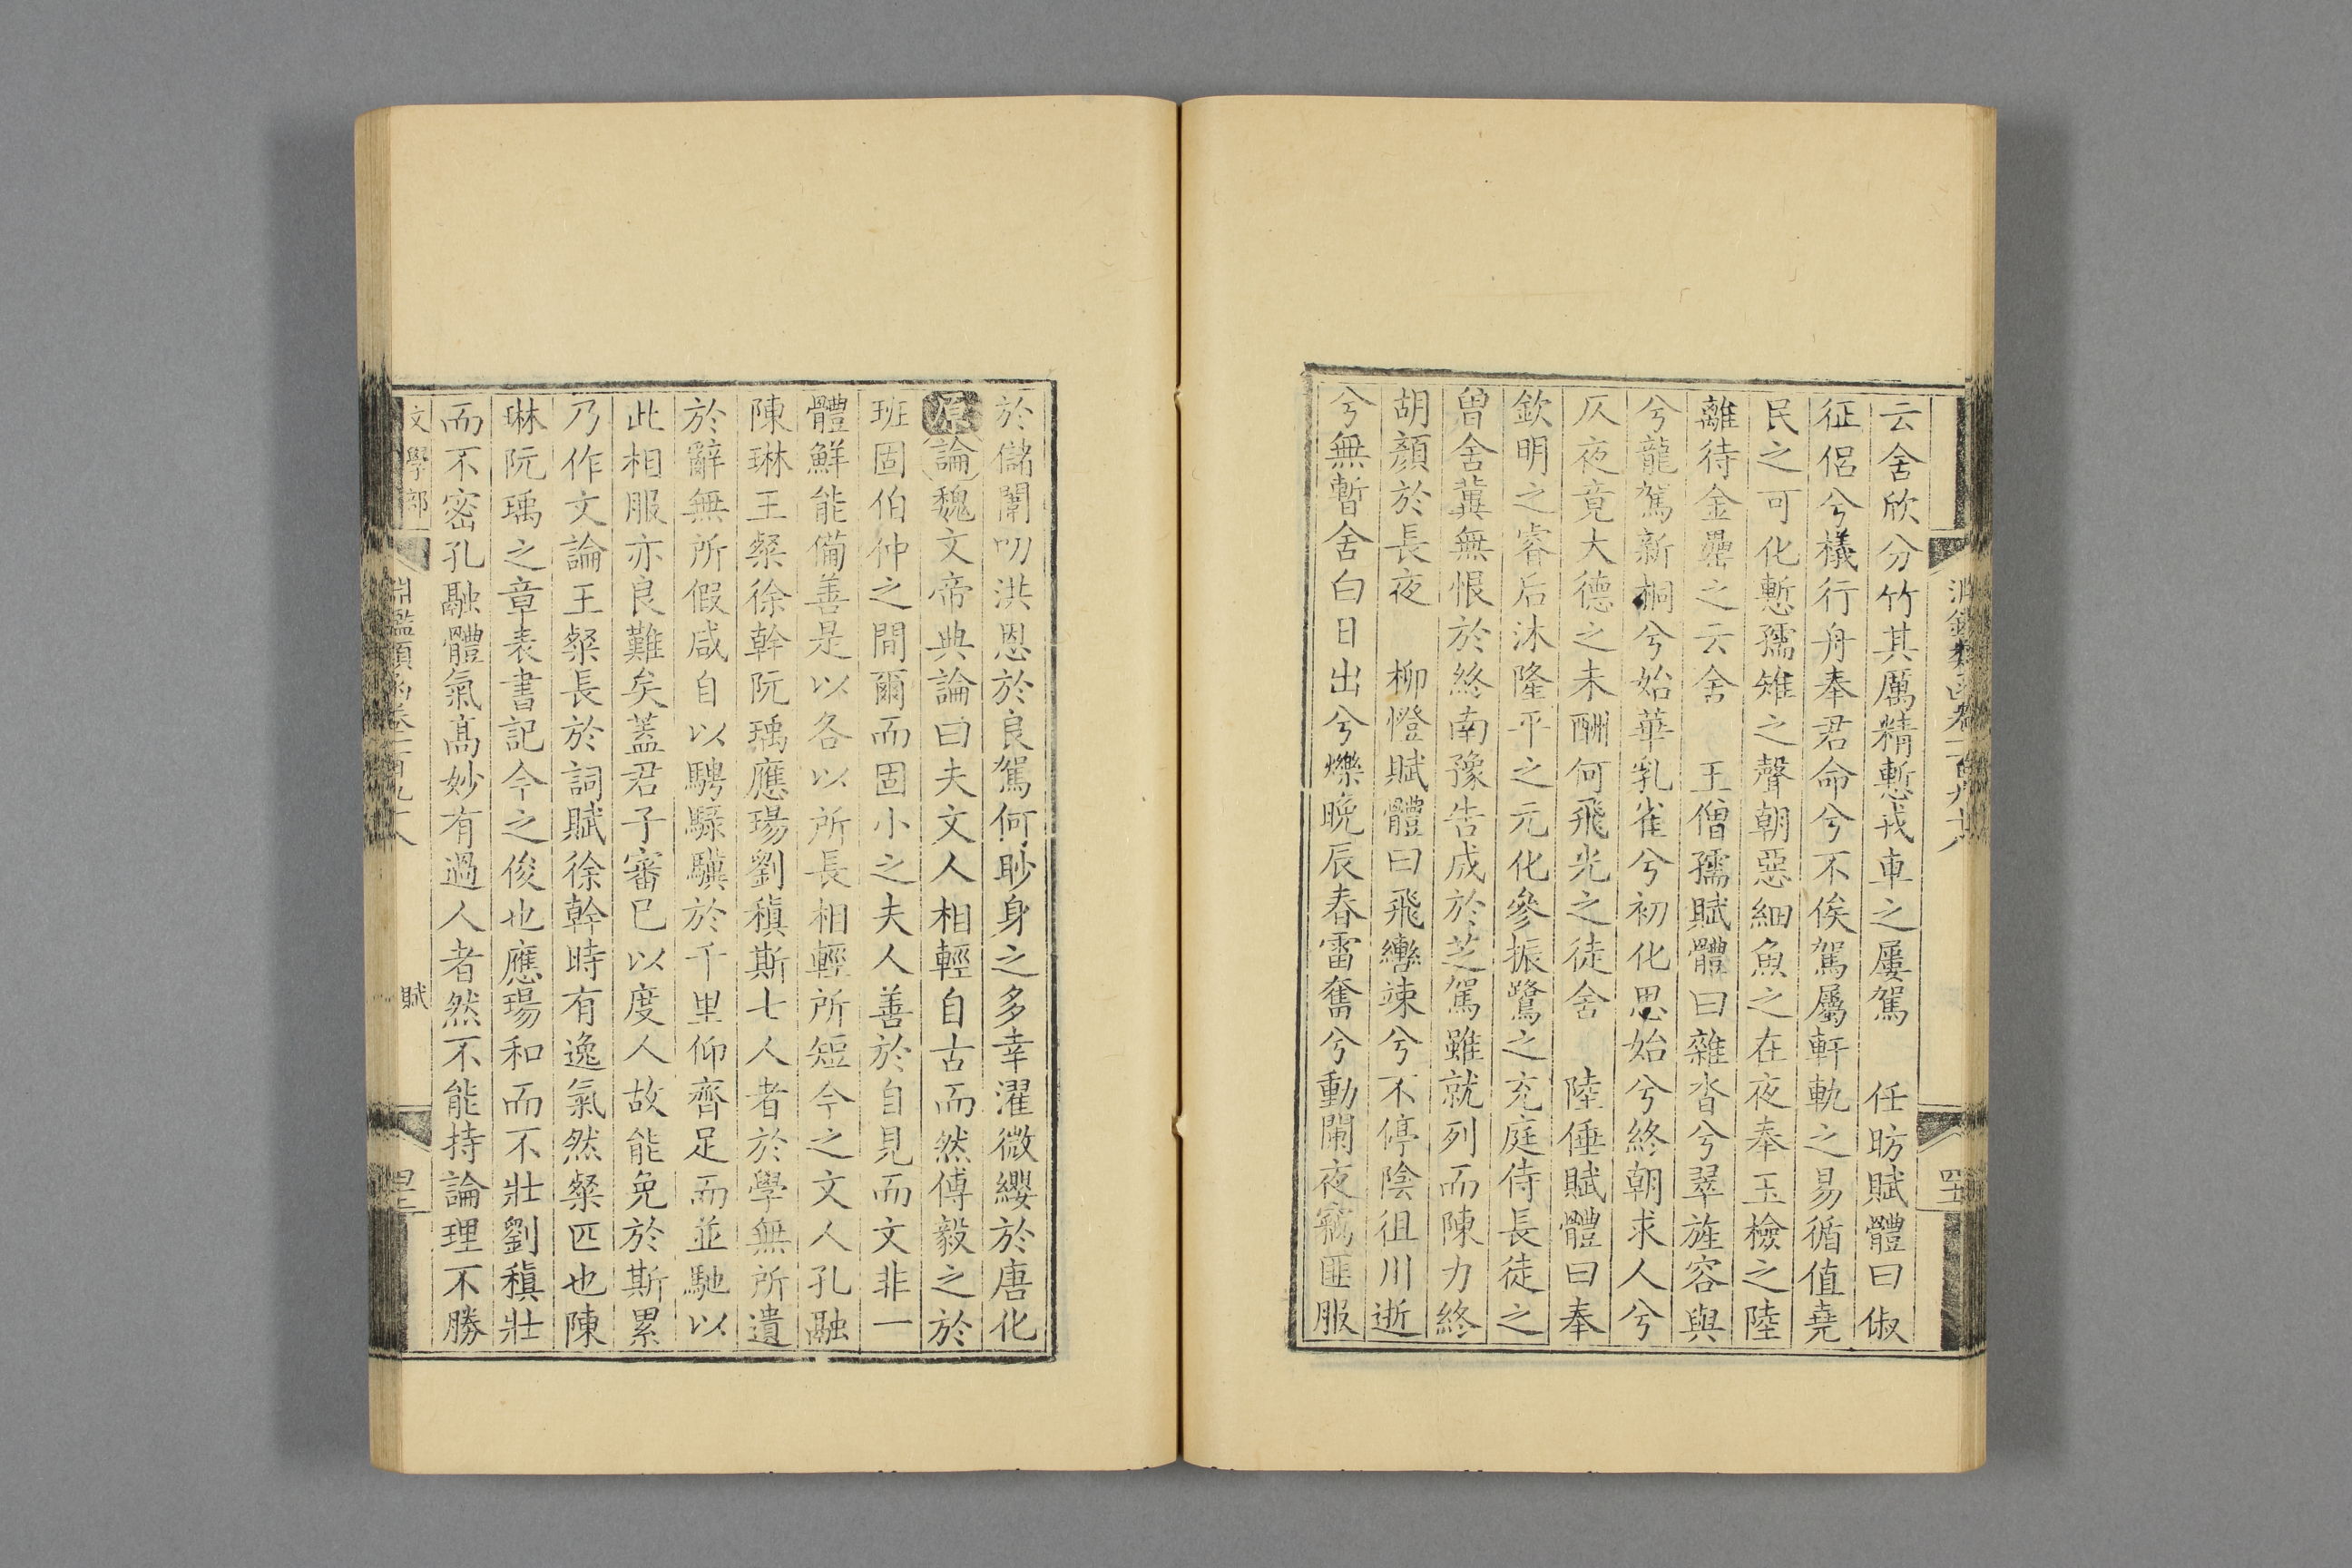 云舍欣分竹其厲精慙戎車之屢駕　任昉賦體曰俶
征侶兮檥行舟奉君命兮不俟駕屬軒軌之易循值堯
民之可化慙孺雉之聲朝惡細魚之在夜奉玉檢之陸
離待金罍之云舍　王僧孺賦體曰雜沓兮翠旌容與
兮龍駕新桐兮始華乳雀兮初化思始兮終朝求人兮
仄夜竟大德之未酬何飛光之徒舍　陸倕賦體曰奉
欽明之睿后沐隆平之元化參振鷺之充庭侍長徒之
曾舍冀無恨於終南豫告成於芝駕雖就列而陳力終
胡顏於長夜　柳憕賦體曰飛轡竦兮不停陰徂川逝
兮無暫舍白日出兮爍晚辰春雷奮兮動闈夜竊匪服
於儲闈叨洪恩於良駕何眇身之多幸濯微纓於唐化
原論魏文帝典論曰夫文人相輕自古而然傅毅之於
班固伯仲之間爾而固小之夫人善於自見而文非一
體鮮能備善是以各以所長相輕所短今之文人孔融
陳琳王粲徐幹阮瑀應瑒劉稹斯七人者於學無所遺
於辭無所假咸自以騁騄驥於千里仰齊足而並馳以
此相服亦良難矣蓋君子審己以度人故能免於斯累
乃作文論王粲長於詞賦徐幹時有逸氣然粲匹也陳
琳阮瑀之章表書記今之俊也應瑒和而不壯劉稹壯
而不密孔融體氣高妙有過人者然不能持論理不勝
文學部　淵鑑類函卷一百九十八　賦